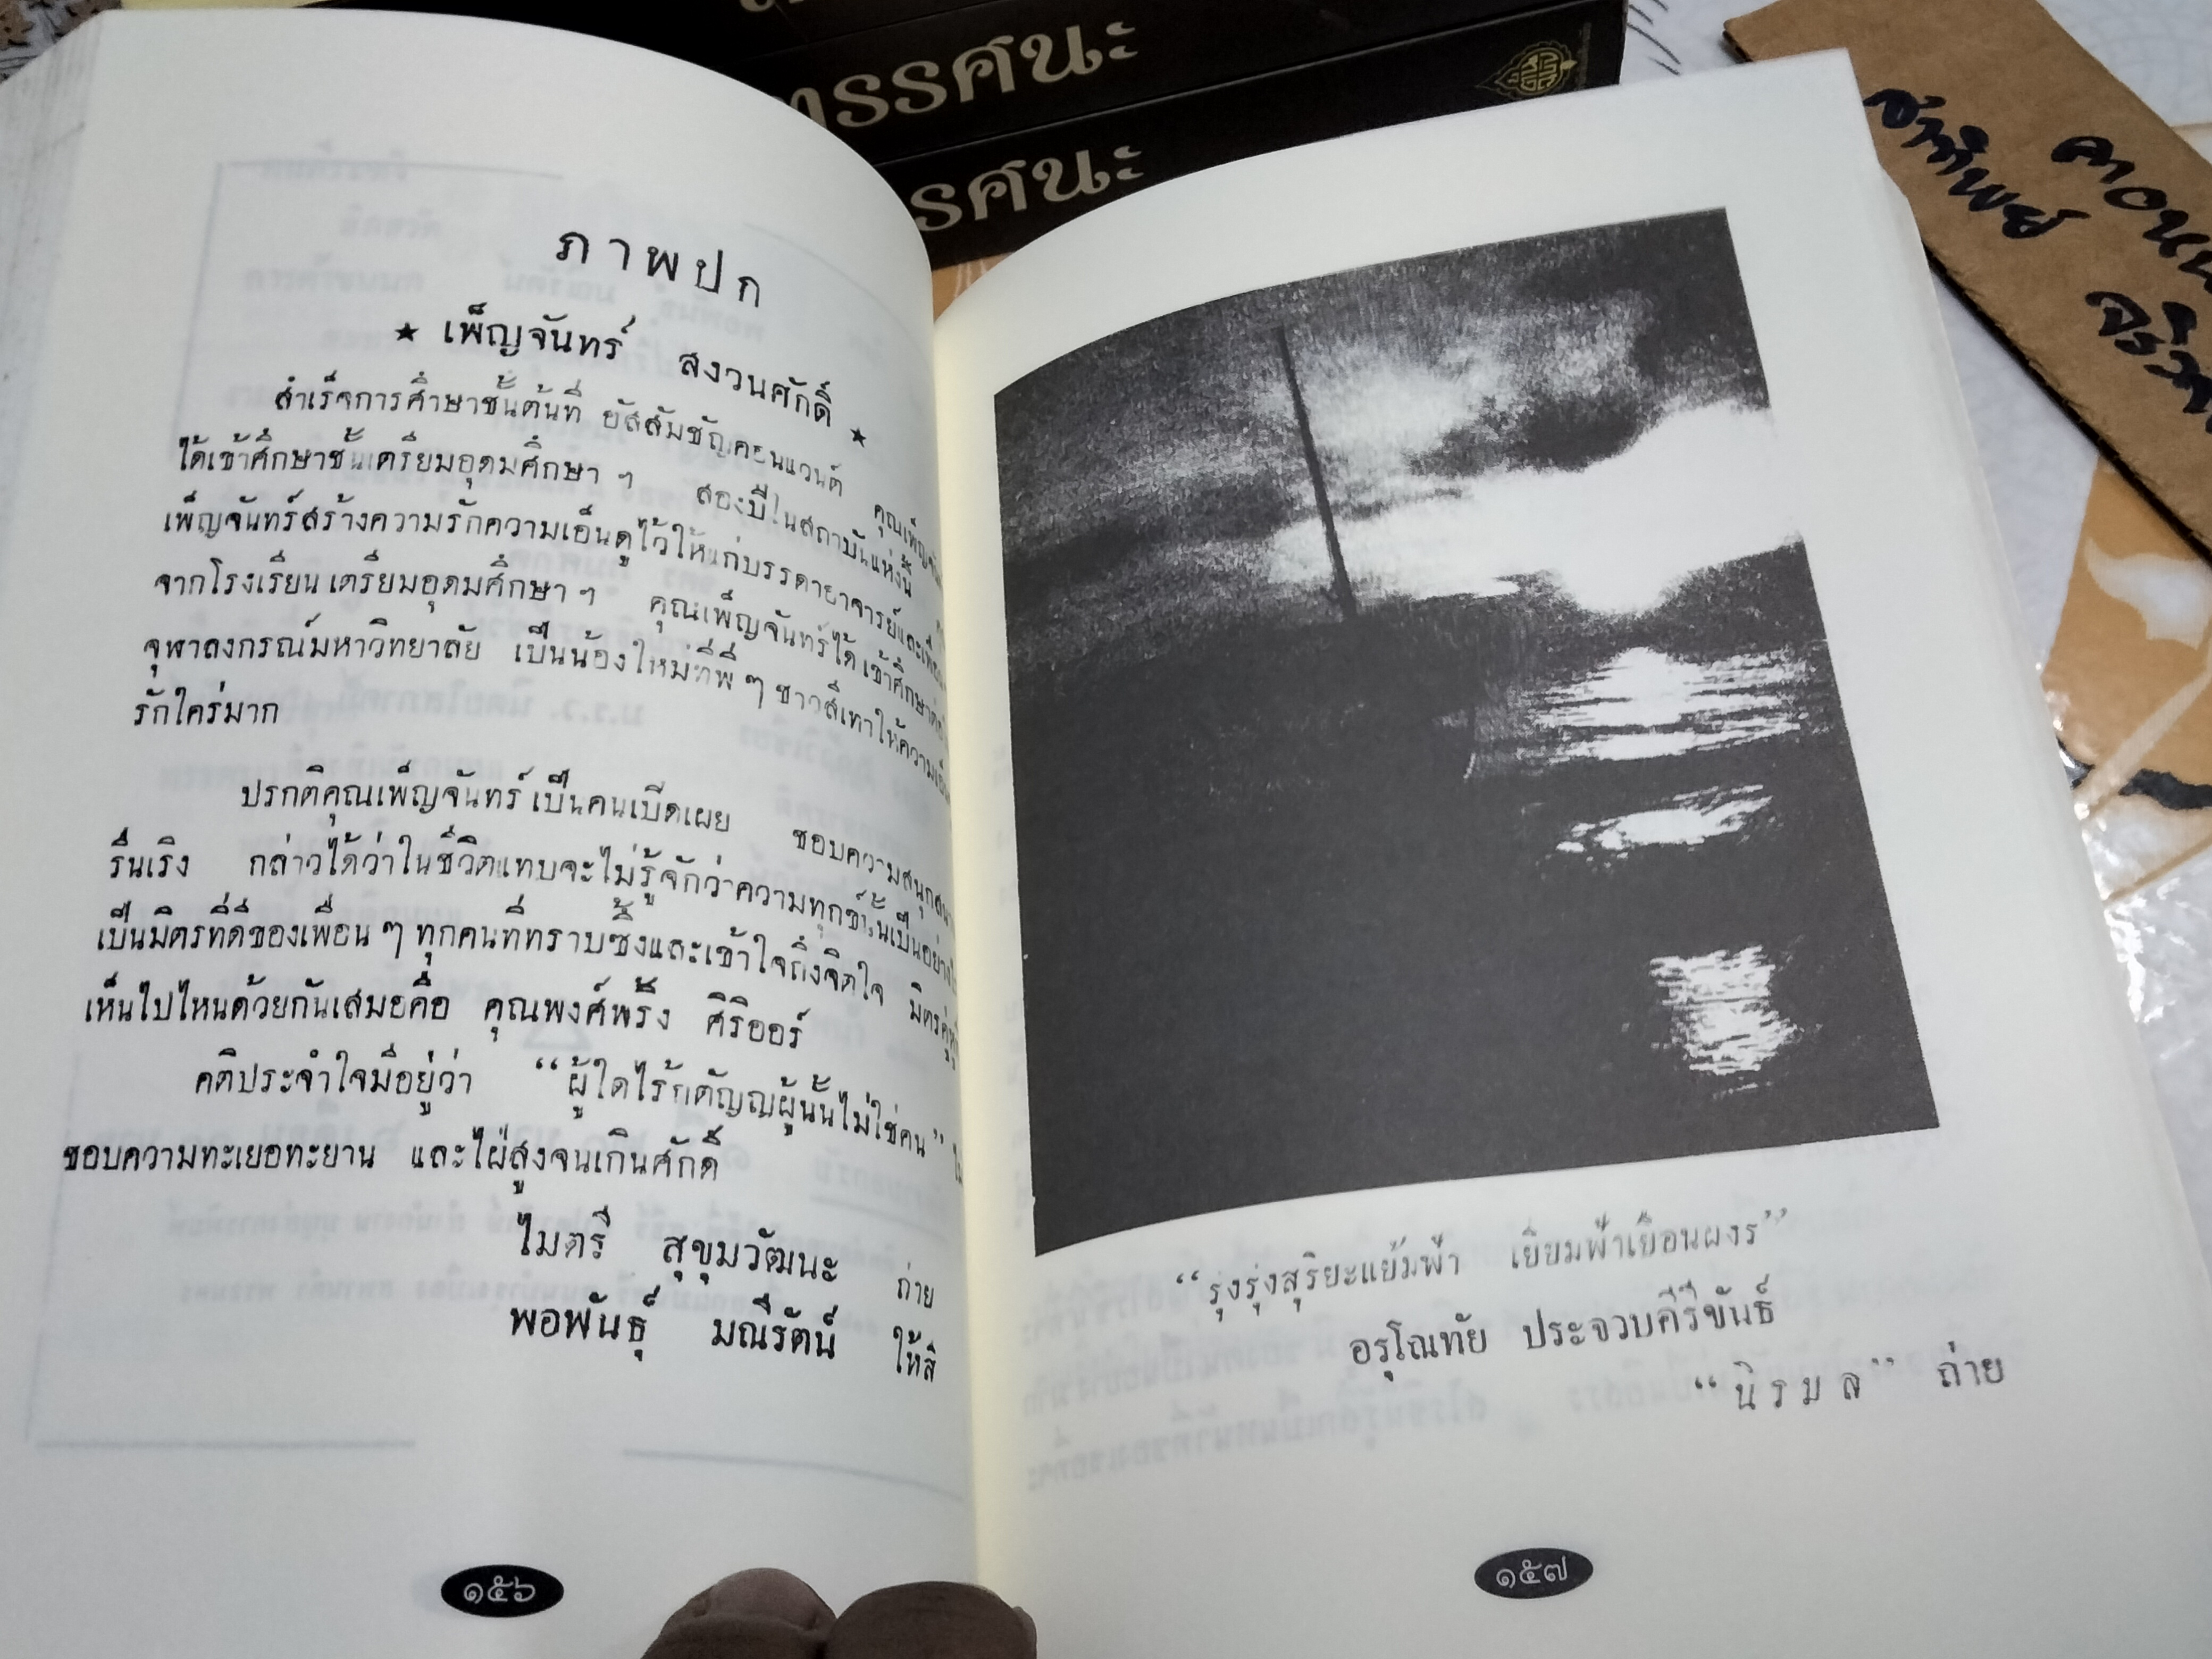 ทรรศนะ
รรศนะ
ภาพปก
★ เพ็ญจันทร์ สงวนศักดิ์ ★
สำเร็จการศึกษาชั้นต้นที่ อัสสัมชัญคอนแวนต์ คุณเพ็ญ
ได้เข้าศึกษาชั้นเตรียมอุดมศึกษา ฯ สองปีในสถาบันแห่งนี้
เพ็ญจันทร์สร้างความรักความเอ็นดูไว้ให้แก่บรรดาอาจารย์และเพื่อน
จากโรงเรียนเตรียมอุดมศึกษา ฯ คุณเพ็ญจันทร์ได้เข้าศึกษาต่อ
จุฬาลงกรณ์มหาวิทยาลัย เป็นน้องใหม่ที่พี่ ๆ ชาวสีเทาให้ความ
รักใคร่มาก
ปรกติคุณเพ็ญจันทร์เป็นคนเปิดเผย ชอบความสนุก
รื่นเริง กล่าวได้ว่าในชีวิตแทบจะไม่รู้จักว่าความทุกข์นั้นเป็นอย่าง
เป็นมิตรที่ดีของเพื่อน ๆ ทุกคนที่ทราบซึ้งและเข้าใจถึงจิตใจ มิตรคู่
เห็นไปไหนด้วยกันเสมอคือ คุณพงศ์พริ้ง ศิริออร์
คติประจำใจมีอยู่ว่า “ผู้ใดไร้กตัญญูผู้นั้นไม่ใช่คน”
ชอบความทะเยอทะยาน และไฝ่สูงจนเกินศักดิ์
ไมตรี สุขุมวัฒนะ ถ่าย
พอพันธุ์ มณีรัตน์ ให้สี
๑๕๖
“รุ่งรุ่งสุริยะแย้มฟ้า เยี่ยมฟ้าเยือนผงร”
อรุโณทัย ประจวบคีรีขันธ์
“นิรมล” ถ่าย
๑๕๗